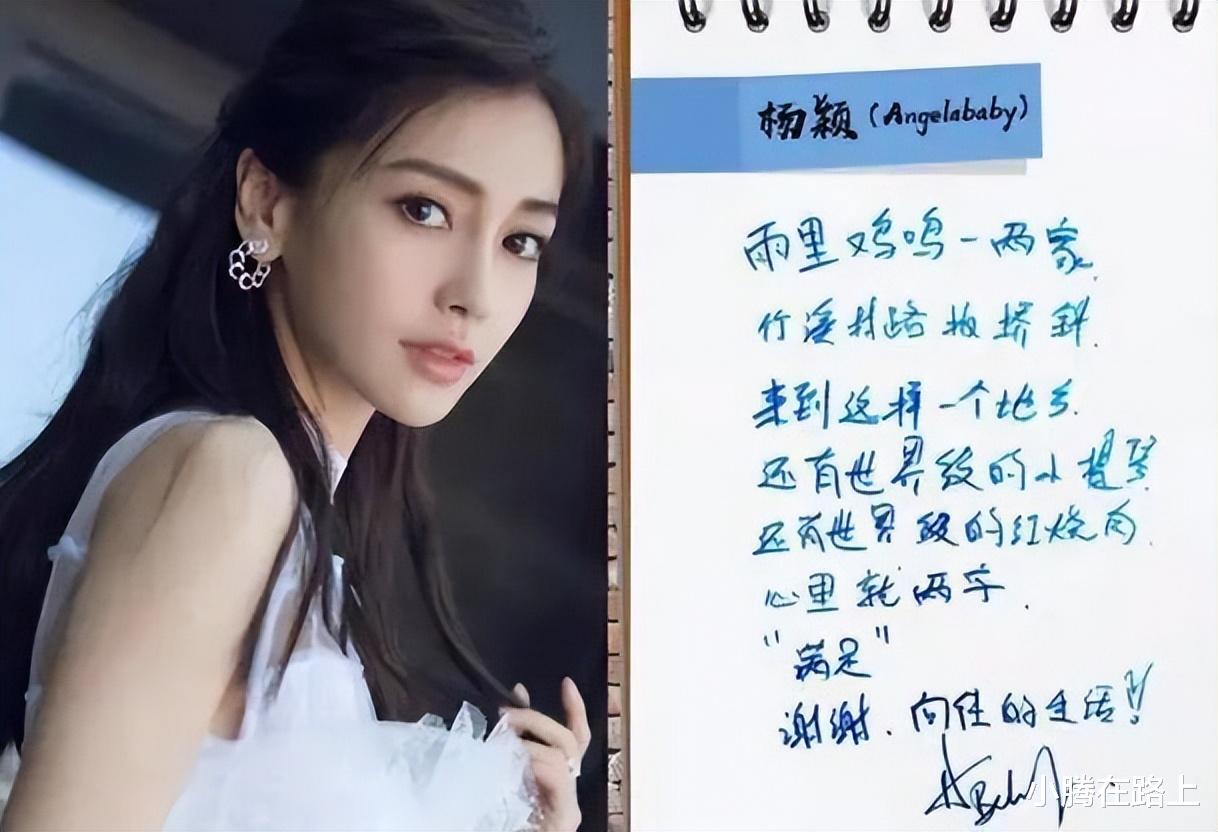 杨颖（Angelababy）
雨里鸡鸣一两家.
竹溪村路板桥斜.
来到这样一个地方.
还有世界级的小提琴
还有世界级的红烧肉.
心里就两字.
"满足"
谢谢.向往的生活!!
小腾在路上